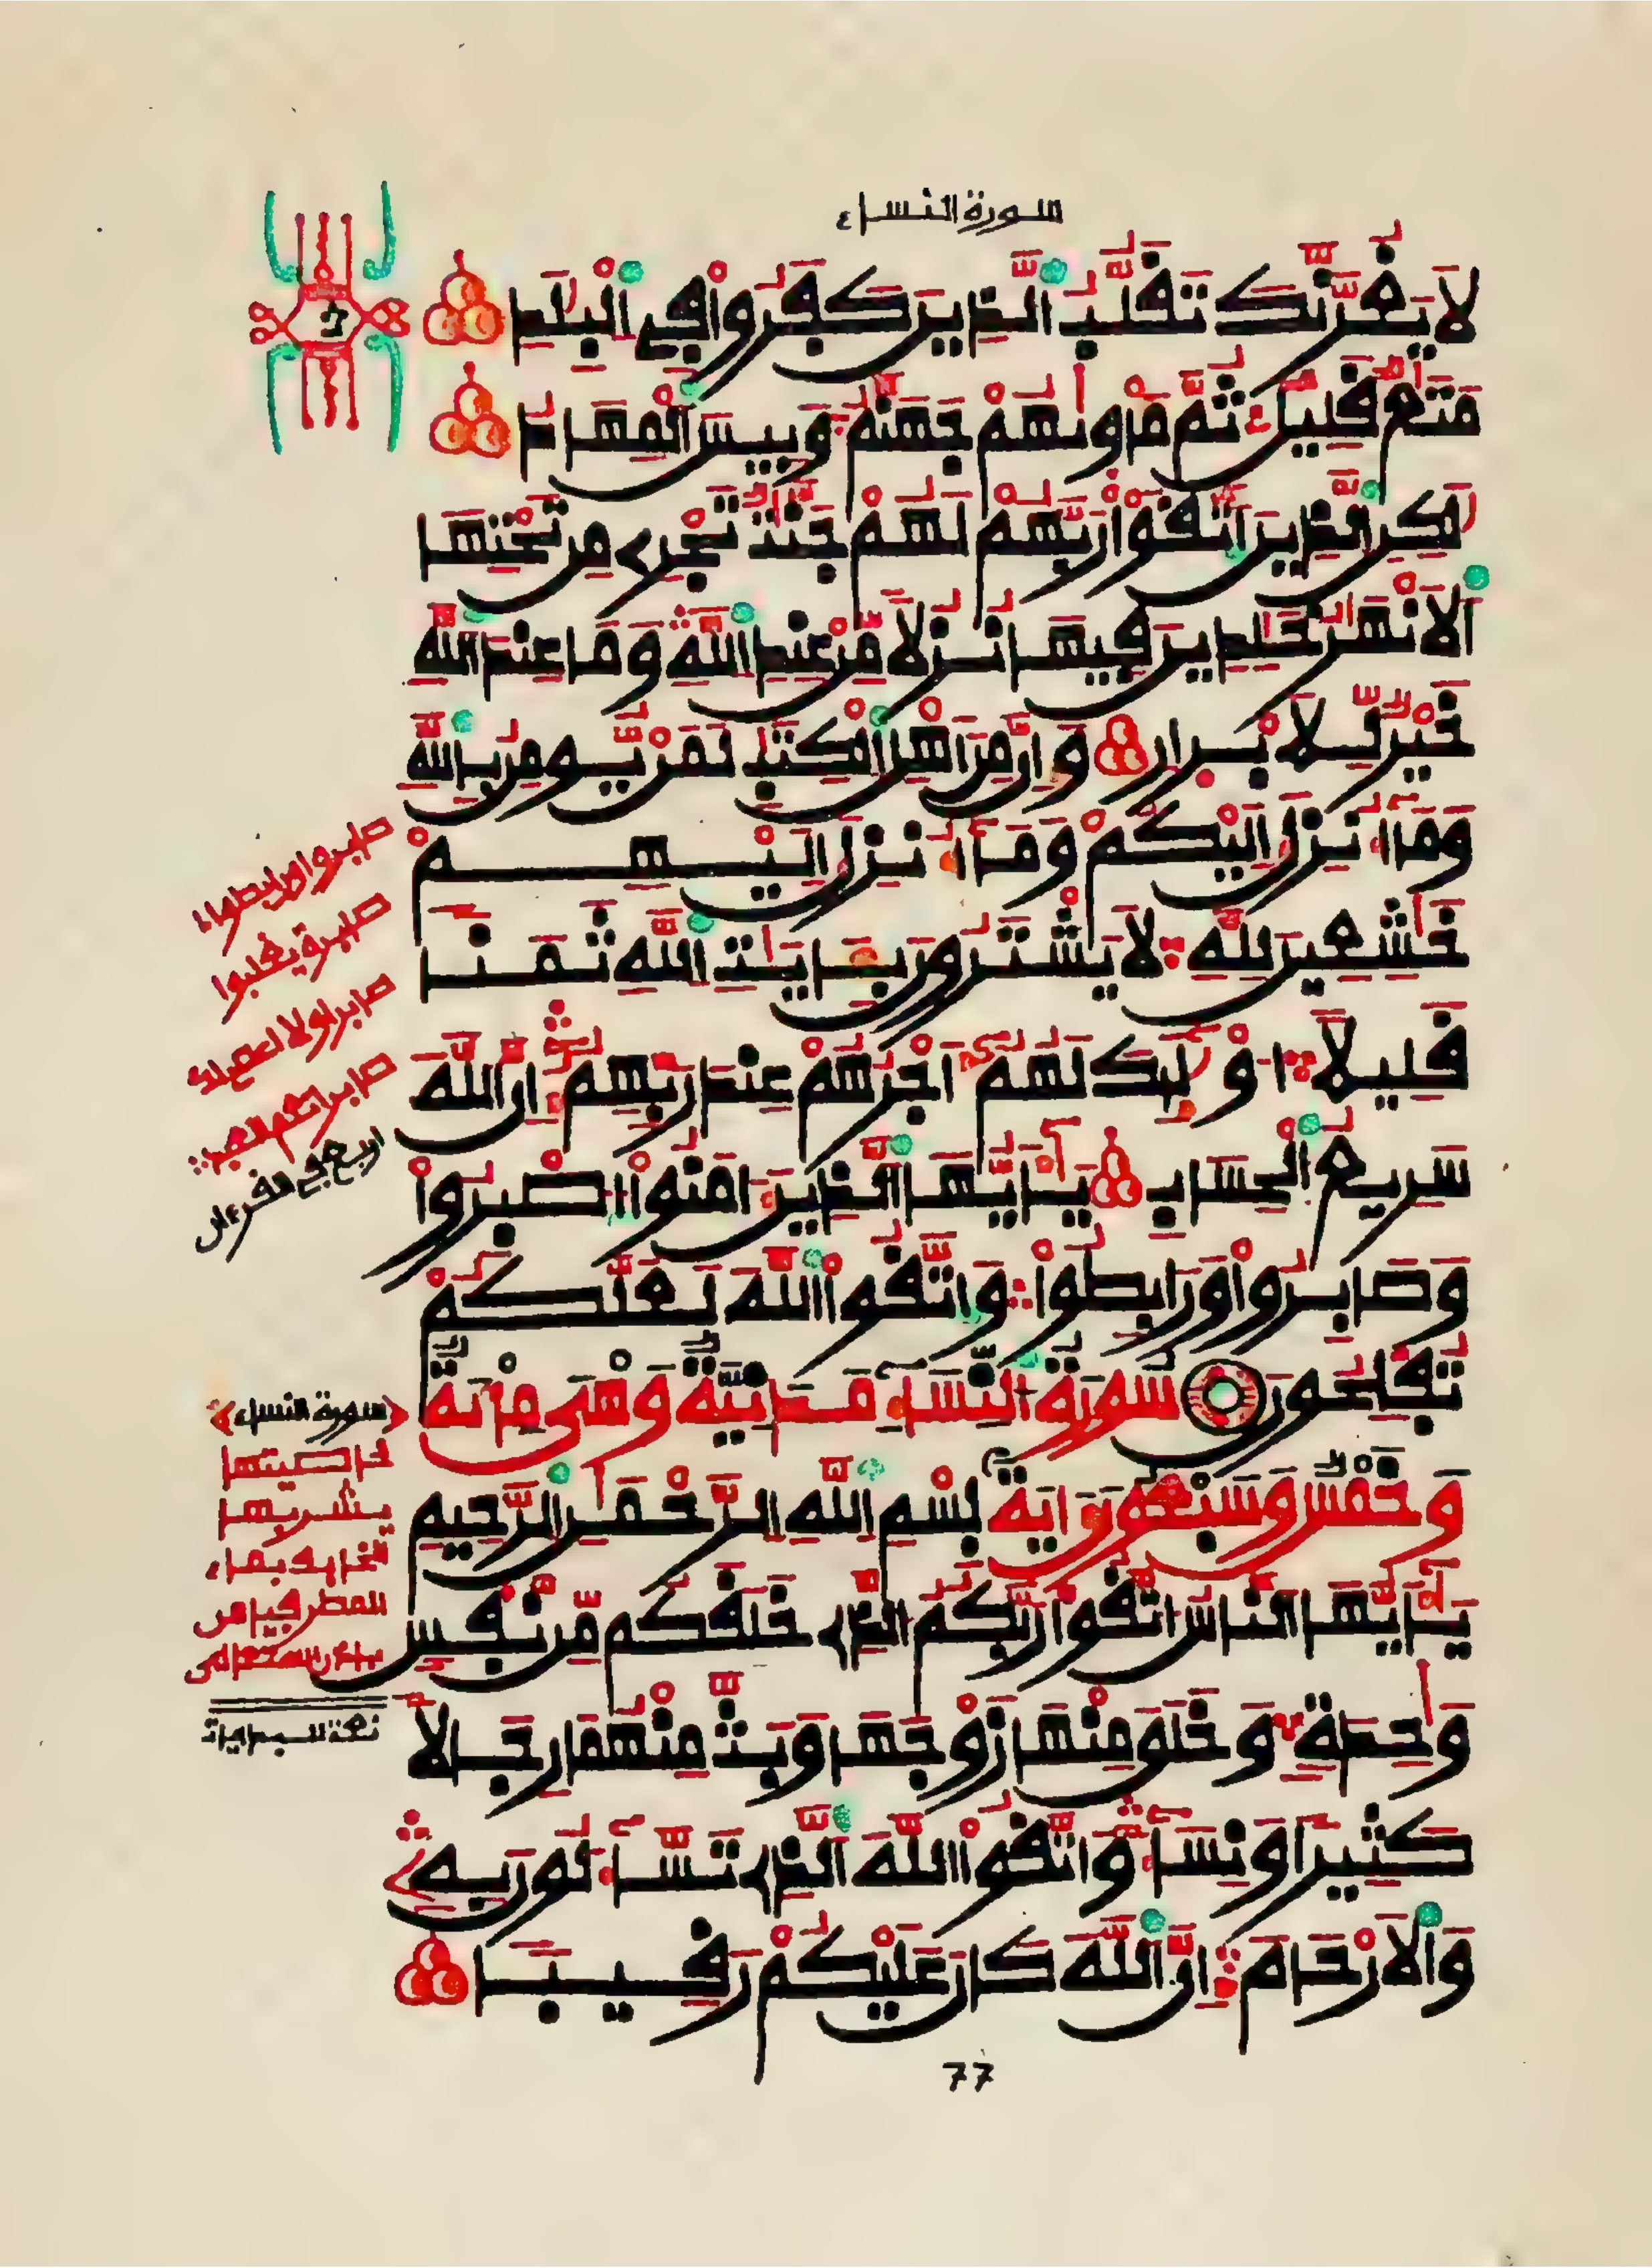 سورة النساء
لَا يَغُرَّنَّكَ تَقَلُّبُ الَّذِينَ كَفَرُوا فِي الْبِلَٰدِ
مَتَٰعٌ قَلِيلٌ ثُمَّ مَأْوَىٰهُمْ جَهَنَّمُ وَبِيسَ الْمِهَادُ
لَٰكِنِ الَّذِينَ اتَّقَوْا رَبَّهُمْ لَهُمْ جَنَّٰتٌ تَجْرِي مِن تَحْتِهَا
الْأَنْهَٰرُ خَٰلِدِينَ فِيهَا نُزُلًا مِّنْ عِندِ اللَّهِ وَمَا عِندَ اللَّهِ
خَيْرٌ لِّلْأَبْرَارِ وَإِنَّ مِنْ أَهْلِ الْكِتَٰبِ لَمَنْ يُّومِنُ بِاللَّهِ
وَمَا أُنزِلَ إِلَيْكُمْ وَمَا أُنزِلَ إِلَيْهِمْ
خَٰشِعِينَ لِلَّهِ لَا يَشْتَرُونَ بِـَٔايَٰتِ اللَّهِ ثَمَنًا
قَلِيلًا أُوْلَٰئِكَ لَهُمْ أَجْرُهُمْ عِندَ رَبِّهِمْ إِنَّ اللَّهَ
سَرِيعُ الْحِسَابِ يَٰأَيُّهَا الَّذِينَ ءَامَنُوا اصْبِرُوا
وَصَابِرُوا وَرَابِطُوا وَاتَّقُوا اللَّهَ لَعَلَّكُمْ
تُفْلِحُونَ سُورَةُ النِّسَاءِ مَدَنِيَّةٌ وَهْيَ مِائَةٌ
وَخَمْسٌ وَسَبْعُونَ ءَايَةً بِسْمِ اللَّهِ الرَّحْمَٰنِ الرَّحِيمِ
يَٰأَيُّهَا النَّاسُ اتَّقُوا رَبَّكُمُ الَّذِي خَلَقَكُم مِّن نَّفْسٍ
وَٰحِدَةٍ وَخَلَقَ مِنْهَا زَوْجَهَا وَبَثَّ مِنْهُمَا رِجَالًا
كَثِيرًا وَنِسَاءً وَاتَّقُوا اللَّهَ الَّذِي تَسَّاءَلُونَ بِهِ
وَالْأَرْحَامَ إِنَّ اللَّهَ كَانَ عَلَيْكُمْ رَقِيبًا
سورة النساء
خاصيتها
يشربها
77